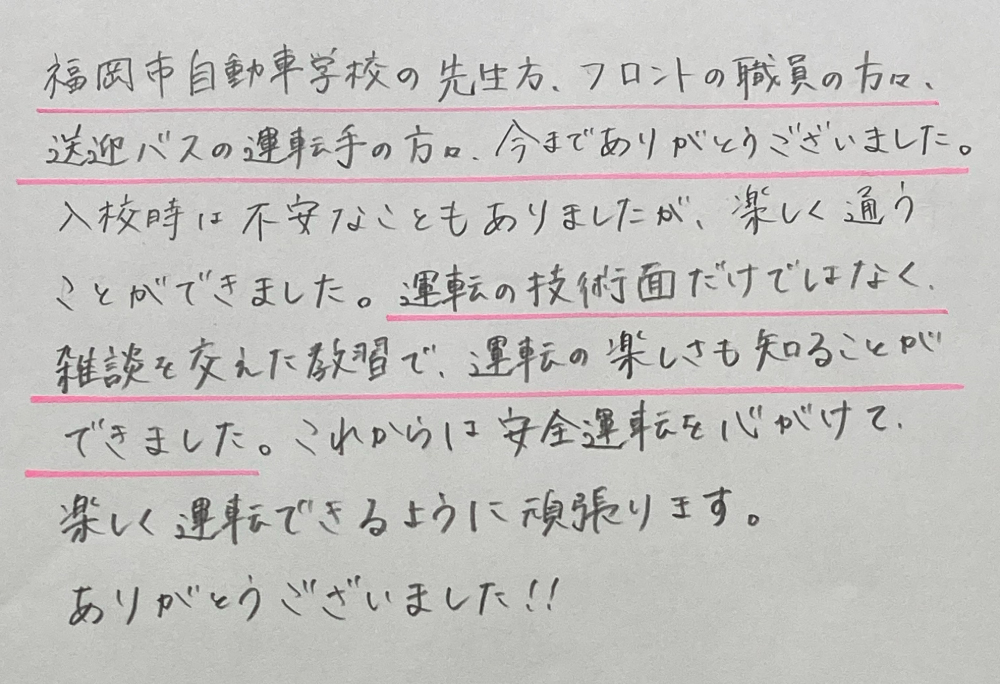 福岡市自動車学校の先生方、フロントの職員の方々、
送迎バスの運転手の方々、今までありがとうございました。
入校時は不安なこともありましたが、楽しく通う
ことができました。運転の技術面だけではなく、
雑談を交えた教習で、運転の楽しさも知ることが
できました。これからは安全運転を心がけて、
楽しく運転できるように頑張ります。
ありがとうございました!!